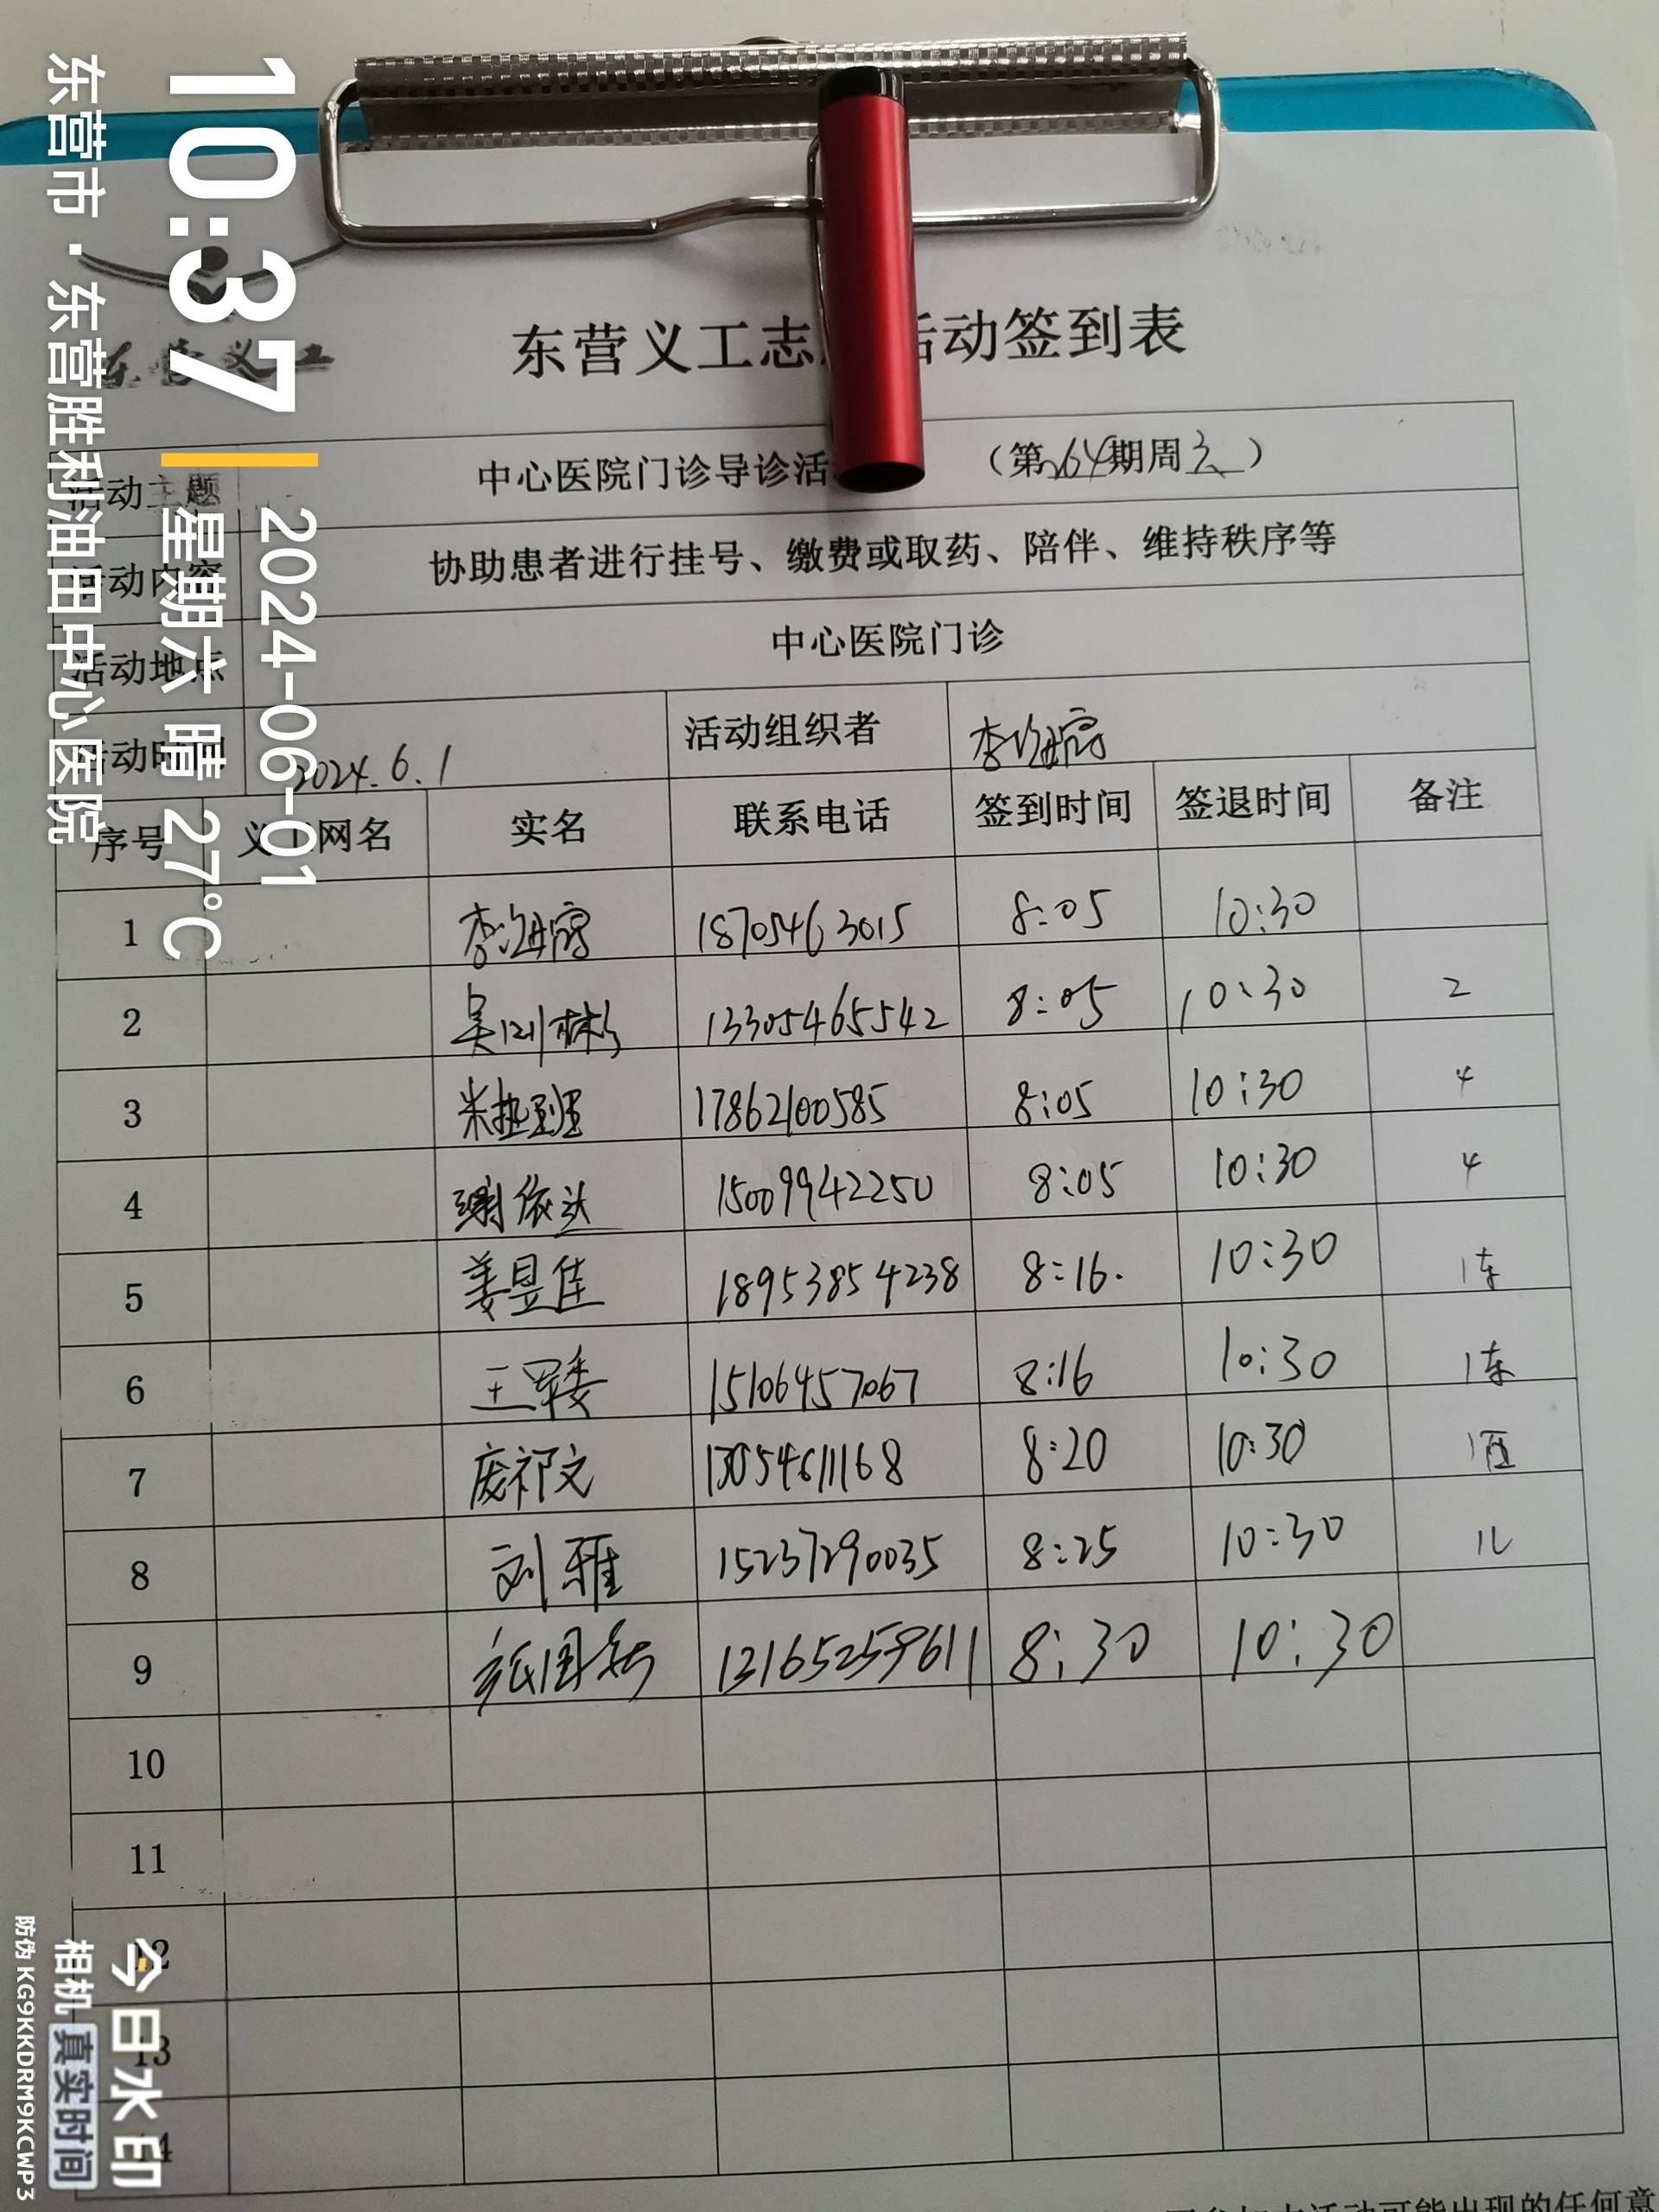 10:37
2024-06-01
星期六 晴 27°C
东营市·东营胜利油田中心医院
东营义工
东营义工志 活动签到表
活动主题 中心医院门诊导诊活 （第264期周六）
活动内容 协助患者进行挂号、缴费或取药、陪伴、维持秩序等
活动地点 中心医院门诊
活动时间 2024.6.1 活动组织者 李海宁
序号 义工网名 实名 联系电话 签到时间 签退时间 备注
1 18705463015 8:05 10:30
2 13305465542 8:05 10:30 2
3 米热班 17862100585 8:05 10:30 4
4 谢依达 15009942250 8:05 10:30 4
5 姜昱佳 18953854238 8:16. 10:30 1东
6 15106457067 8:16 10:30 1东
7 庞祁文 13054611168 8:20 10:30 1西
8 刘雅 15237290035 8:25 10:30 1L
9 13165259611 8:30 10:30
10
11
12
13
14
今日水印
相机 真实时间
防伪 KG9KKDRM9KCWP3